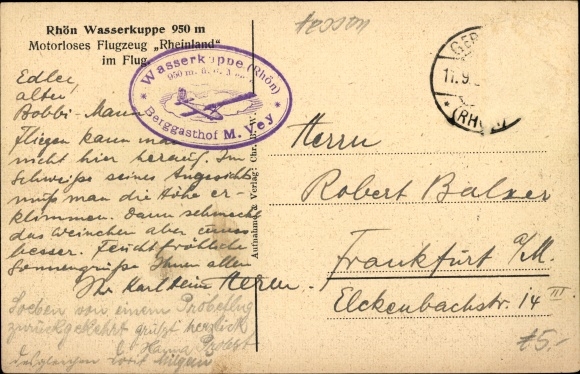 Rhön Wasserkuppe 950 m
Motorloses Flugzeug „Rheinland"
im Flug.
Wasserkuppe (Rhön)
950 m. ü. d. M.
Berggasthof M. Vey
Edler,
alter,
Bobbi-Mann
Fliegen kann man
nicht hier herauf. Im
Schweiße seines Angesichts
muß man die Höhe er-
klimmen. Dann schmeckt
das Weinchen aber umso
besser. Feucht fröhliche
Sonnengrüße Ihnen allen
Ihr Karlheinz
Soeben von einem Probeflug
zurückgekehrt grüßt herzlich
Hanna Probst
desgleichen
Aufnahme & Verlag: Chr.
Hessen
GER
11.9.
(RHÖN)
Herrn
Robert Balzer
Frankfurt a/M.
Elckenbachstr. 14 III
€5.-